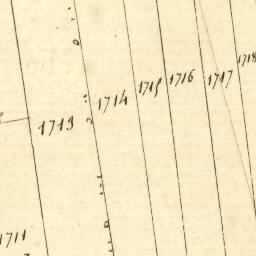 1718
1717
1716
1715
1714
1713
1711